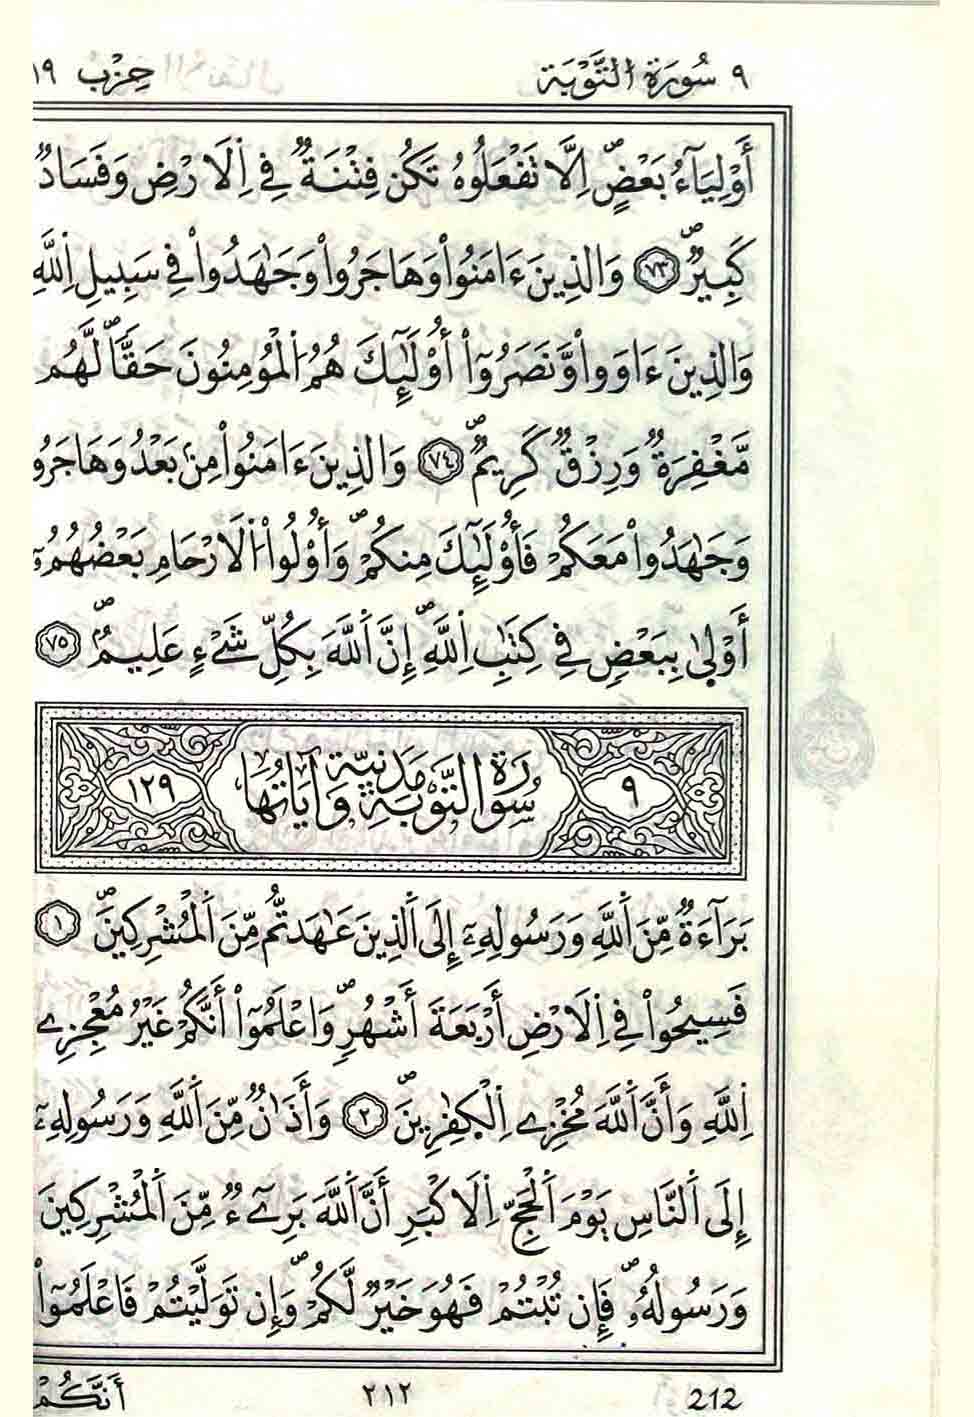 ٩ سُورَةُ التَّوْبَة حِزْب ١٩
أَوْلِيَآءُ بَعْضٍۖ اِلَّا تَفْعَلُوهُ تَكُن فِتْنَةٌ فِے اِ۬لَارْضِ وَفَسَادٌ
كَبِيرٌۖ ٧٣ وَالذِينَ ءَامَنُواْ وَهَاجَرُواْ وَجَٰهَدُواْ فِے سَبِيلِ اِ۬للَّهِ
وَالذِينَ ءَاوَواْ وَّنَصَرُوٓاْ أُوْلَٰٓئِكَ هُمُ اُ۬لْمُومِنُونَ حَقّاٗۖ لَّهُم
مَّغْفِرَةٌ وَرِزْقٌ كَرِيمٌۖ ٧٤ وَالذِينَ ءَامَنُواْ مِنۢ بَعْدُ وَهَاجَرُو
وَجَٰهَدُواْ مَعَكُمْ فَأُوْلَٰٓئِكَ مِنكُمْۖ وَأُوْلُواْ اُ۬لَارْحَامِ بَعْضُهُمُۥٓ
أَوْلىٰ بِبَعْضٍ فِے كِتَٰبِ اِ۬للَّهِۖ إِنَّ اَ۬للَّهَ بِكُلِّ شَےْءٍ عَلِيمٌۖ ٧٥
٩ سُورَةُ التَّوْبَةِ مَدَنِيَّة وَآيَاتُهَا ١٢٩
بَرَآءَةٌ مِّنَ اَ۬للَّهِ وَرَسُولِهِۦٓ إِلَى اَ۬لذِينَ عَٰهَدتُّم مِّنَ اَ۬لْمُشْرِكِينَۖ ١
فَسِيحُواْ فِے اِ۬لَارْضِ أَرْبَعَةَ أَشْهُرٖۖ وَاعْلَمُوٓاْ أَنَّكُمْ غَيْرُ مُعْجِزِے
اِ۬للَّهِ وَأَنَّ اَ۬للَّهَ مُخْزِے اِ۬لْكٰفِرِينَۖ ٢ وَأَذَٰنٌ مِّنَ اَ۬للَّهِ وَرَسُولِهِۦٓ
إِلَى اَ۬لنَّاسِ يَوْمَ اَ۬لْحَجِّ اِ۬لَاكْبَرِ أَنَّ اَ۬للَّهَ بَرِےٓءٌ مِّنَ اَ۬لْمُشْرِكِينَ
وَرَسُولُهُۥۖ فَإِن تُبْتُمْ فَهُوَ خَيْرٌ لَّكُمْۖ وَإِن تَوَلَّيْتُمْ فَاعْلَمُوٓاْ
أَنَّكُمْ ٢١٢ 212